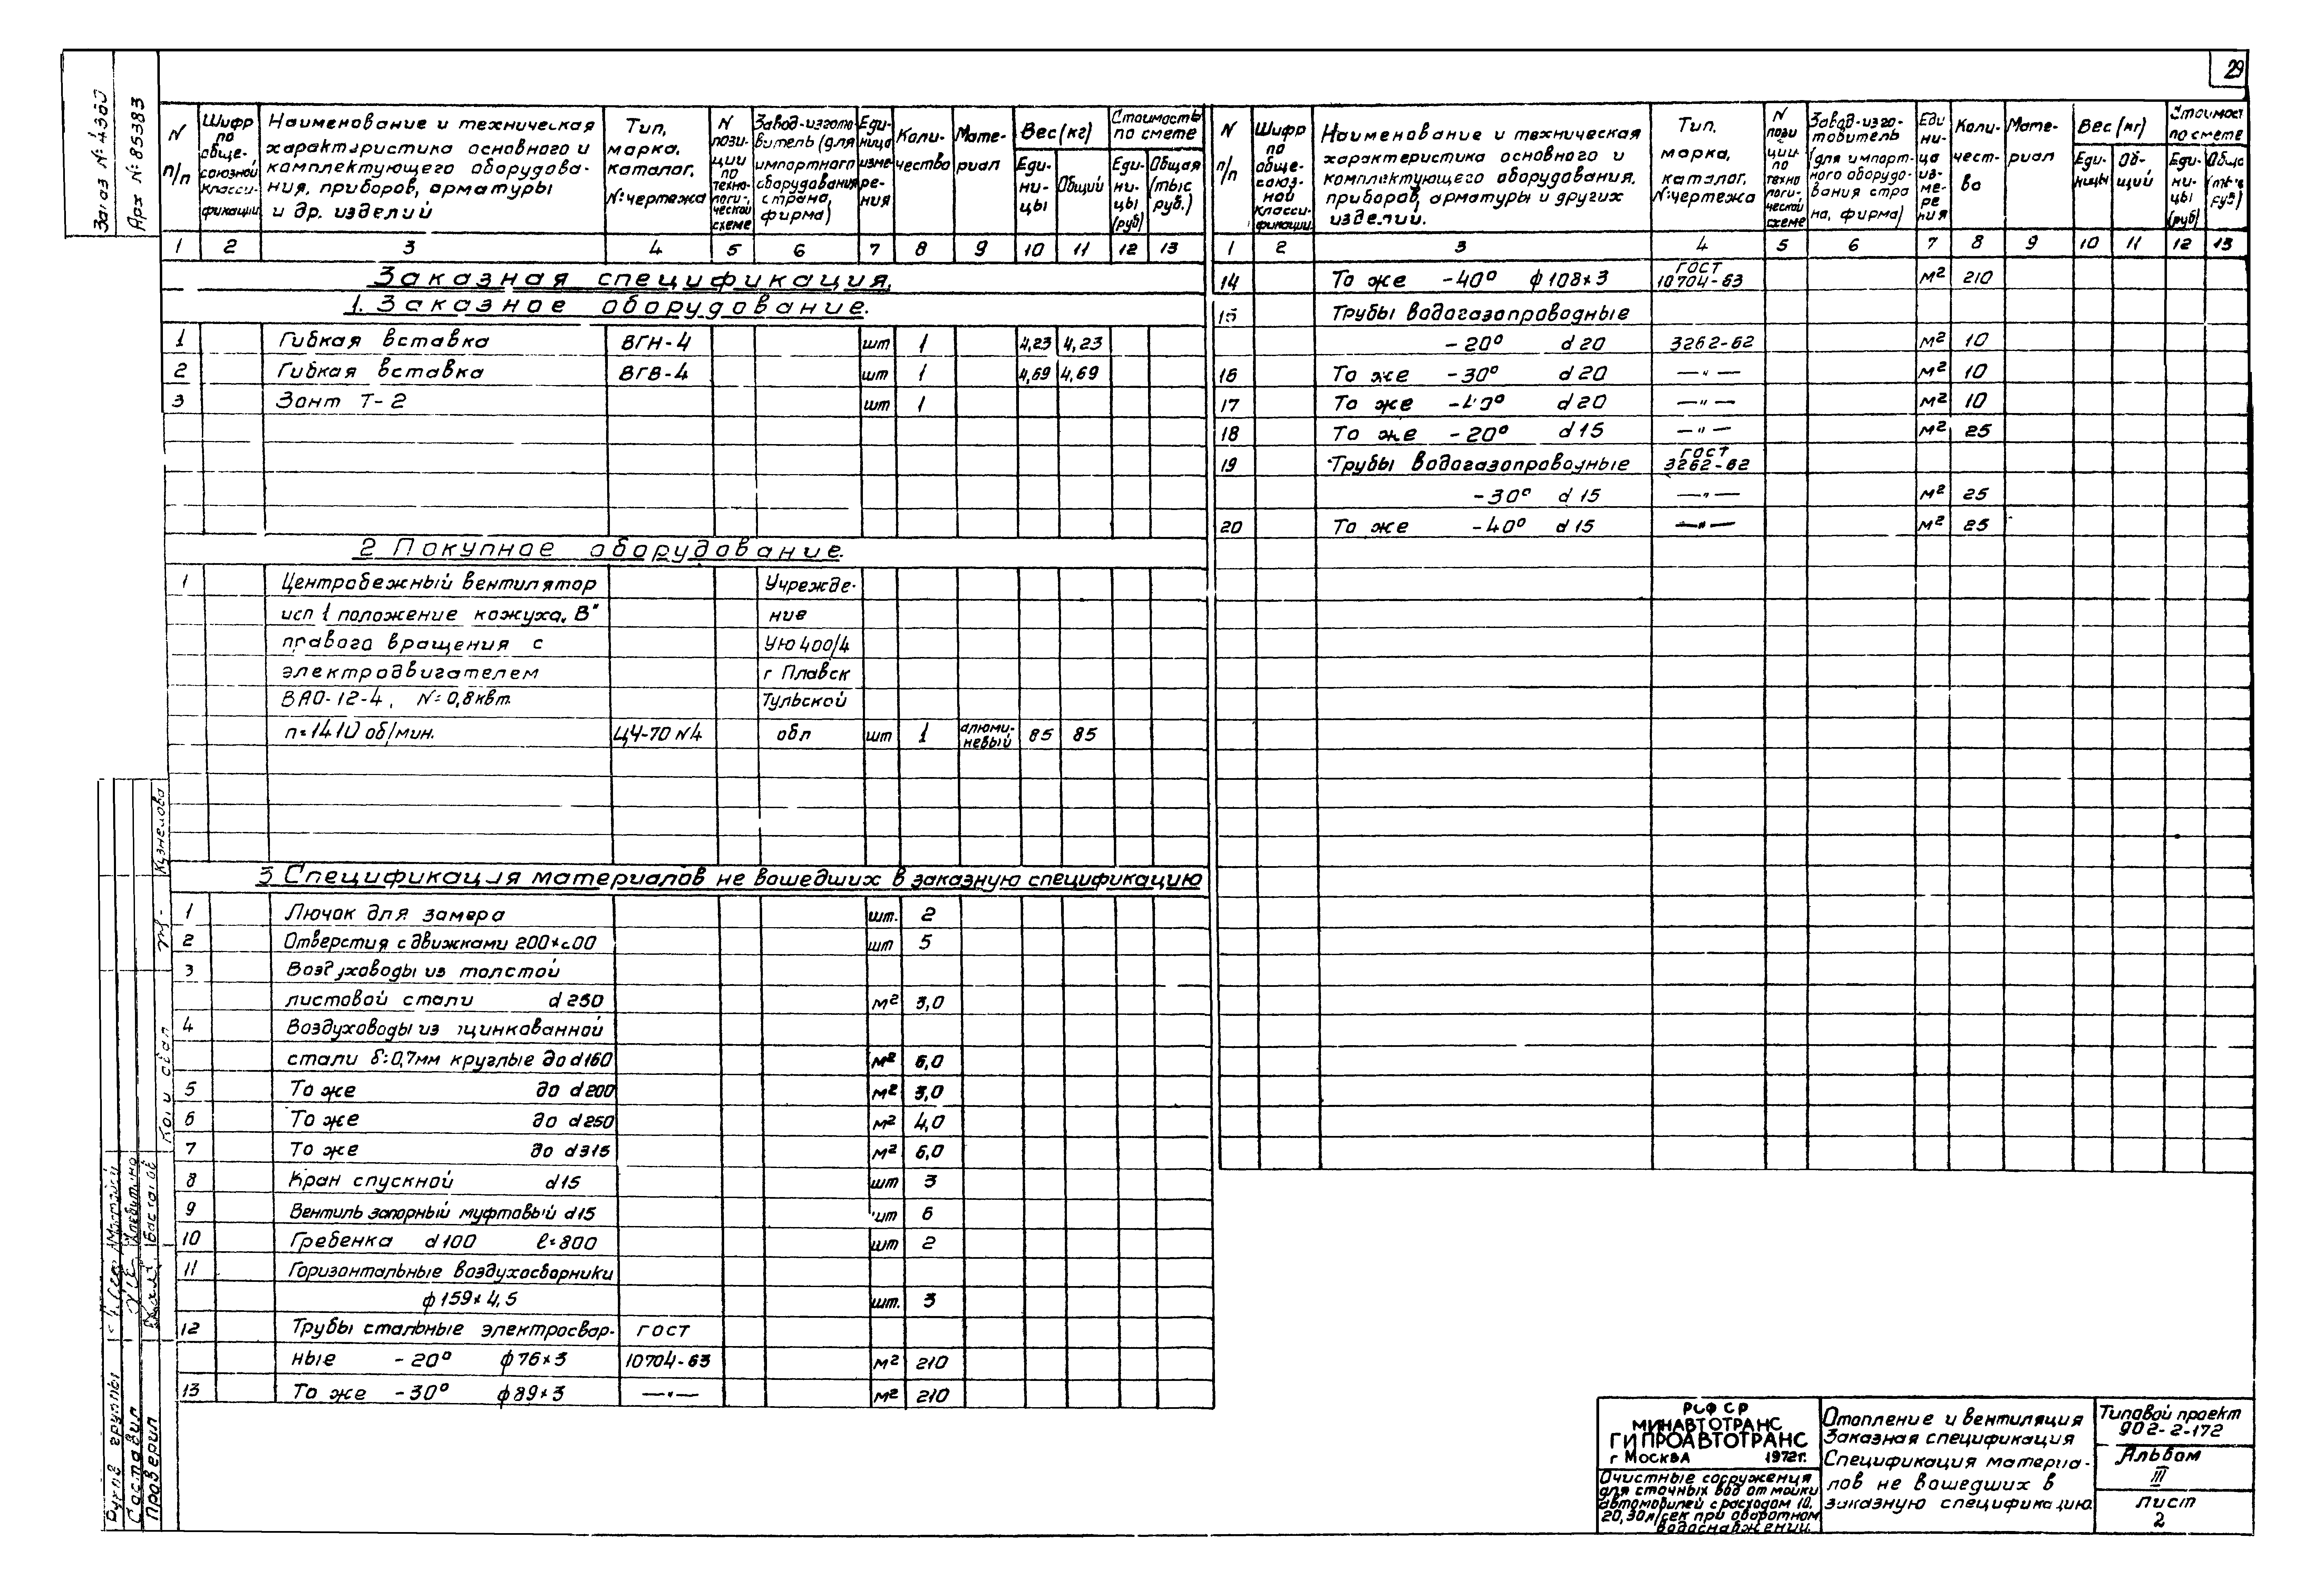 29
Заказ № 4380
Арх № 85383
N п/п
Шифр по обще-союзной класси-фикации
Наименование и техническая характеристика основного и комплектующего оборудова-ния, приборов, арматуры и др. изделий
Тип, марка, каталог, № чертежа
N пози-ции по техно-логи-ческой схеме
Завод-изгото-витель (для импортного оборудования страна, фирма)
Еди-ница изме-ре-ния
Коли-чество
Мате-риал
Вес (кг)
Еди-ни-цы
Общий
Стоимость по смете
Еди-ни-цы (руб)
Общая (тыс руб.)
1 2 3 4 5 6 7 8 9 10 11 12 13
Заказная спецификация.
1. Заказное оборудование.
1 Гибкая вставка ВГН-4 шт 1 4,23 4,23
2 Гибкая вставка ВГВ-4 шт 1 4,69 4,69
3 Зонт Т-2 шт 1
2 Покупное оборудование.
1 Центробежный вентилятор Учрежде-
исп 1 положение кожуха „В" ние
правого вращения с Ую 400/4
электродвигателем г Плавск
ВАО-12-4, N=0,8квт. Тульской
n=1410 об/мин. Ц4-70 N4 обл шт 1 алюми-невый 85 85
3 Спецификация материалов не вошедших в заказную спецификацию
1 Лючок для замера шт. 2
2 Отверстия с движками 200×200 шт 5
3 Воздуховоды из толстой
листовой стали d 250 м² 3,0
4 Воздуховоды из оцинкованной
стали δ=0,7мм круглые до d160 м² 6,0
5 То же до d200 м² 3,0
6 То же до d250 м² 4,0
7 То же до d315 м² 6,0
8 Кран спускной d15 шт 3
9 Вентиль запорный муфтовый d15 шт 6
10 Гребенка d100 ℓ=800 шт 2
11 Горизонтальные воздухосборники
ф159×4,5 шт. 3
12 Трубы стальные электросвар- ГОСТ
ные -20° ф76×3 10704-63 м² 210
13 То же -30° ф89×3 —"— м² 210
N п/п
Шифр по обще-союз-ной класси-фикации
Наименование и техническая характеристика основного и комплектующего оборудования, приборов, арматуры и других изделий.
Тип, марка, каталог, № чертежа
N пози ции по техно логи-ческой схеме
Завод-изго-товитель (для импорт-ного оборудо-вания стра на, фирма)
Еди ни-ца из-ме-ре ния
Коли-чест-во
Мате-риал
Вес (кг)
Еди-ницы
Об-щий
Стоимост по смете
Еди-ни-цы (руб)
1 2 3 4 5 6 7 8 9 10 11 12 13
14 То же -40° ф108×3 ГОСТ 10704-63 м² 210
15 Трубы водогазопроводные
-20° d20 3262-62 м² 10
16 То же -30° d20 —"— м² 10
17 То же -40° d20 —"— м² 10
18 То же -20° d15 —"— м² 25
19 Трубы водогазопроводные ГОСТ 3262-62
-30° d15 —"— м² 25
20 То же -40° d15 —"— м² 25
Кузнецова
Составил
Проверил
РСФСР
МИНАВТОТРАНС
ГИПРОАВТОТРАНС
г Москва 1972г.
Очистные сооружения
для сточных вод от мойки
автомобилей с расходом 10,
20,30л/сек при оборотном
водоснабжении.
Отопление и вентиляция
Заказная спецификация
Спецификация материа-
лов не вошедших в
заказную спецификацию.
Типовой проект
902-2-172
Альбом
III
лист
2